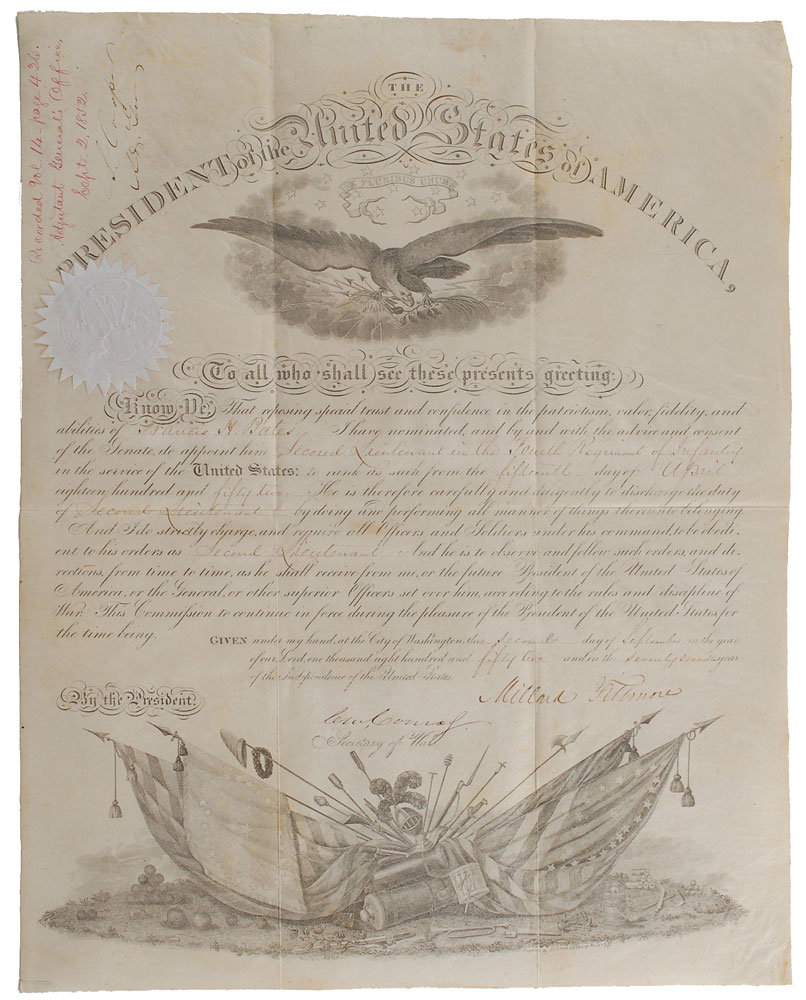 Recorded Vol. 14 - page 426.
Adjutant General's Office,
Sept. 2, 1852.
S. Cooper
THE
PRESIDENT of the United States of AMERICA,
E PLURIBUS UNUM
To all who shall see these presents greeting:
Know Ye, That reposing special trust and confidence in the patriotism, valor, fidelity, and
abilities of Francis H. Bates, I have nominated, and by and with the advice and consent
of the Senate, do appoint him Second Lieutenant in the Fourth Regiment of Infantry
in the service of the United States: to rank as such from the fifteenth day of April
eighteen hundred and fifty two. He is therefore carefully and diligently to discharge the duty
of Second Lieutenant by doing and performing all manner of things thereunto belonging.
And I do strictly charge, and require all Officers and Soldiers under his command, to be obedi-
ent to his orders as Second Lieutenant. And he is to observe and follow such orders, and di-
rections, from time to time, as he shall receive from me, or the future President of the United States of
America, or the General, or other superior Officers set over him, according to the rules and discipline of
War. This Commission to continue in force during the pleasure of the President of the United States, for
the time being.
GIVEN under my hand, at the City of Washington, this second day of September in the year
of our Lord, one thousand eight hundred and fifty two and in the seventy seventh year
of the Independence of the United States.
By the President:
Millard Fillmore
C. M. Conrad
Secretary of War.